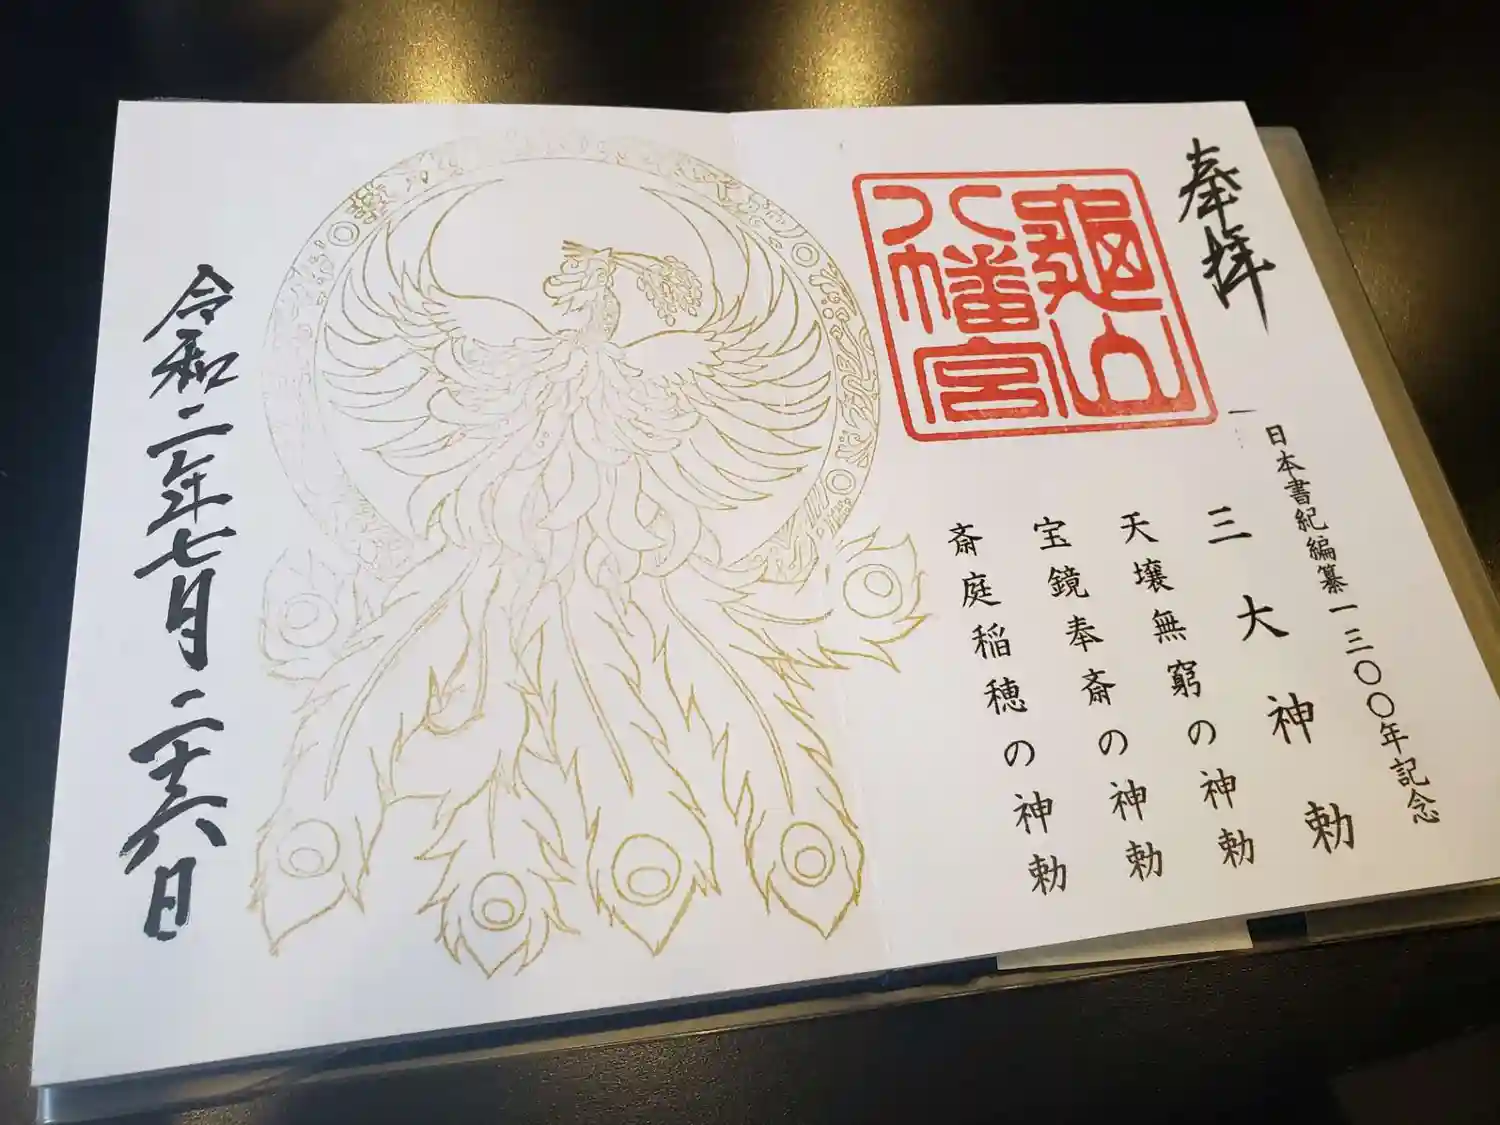 奉拝
亀山
八幡宮
日本書紀編纂一三〇〇年記念
三大神勅
天壌無窮の神勅
宝鏡奉斎の神勅
斎庭稲穂の神勅
令和二年七月二十六日